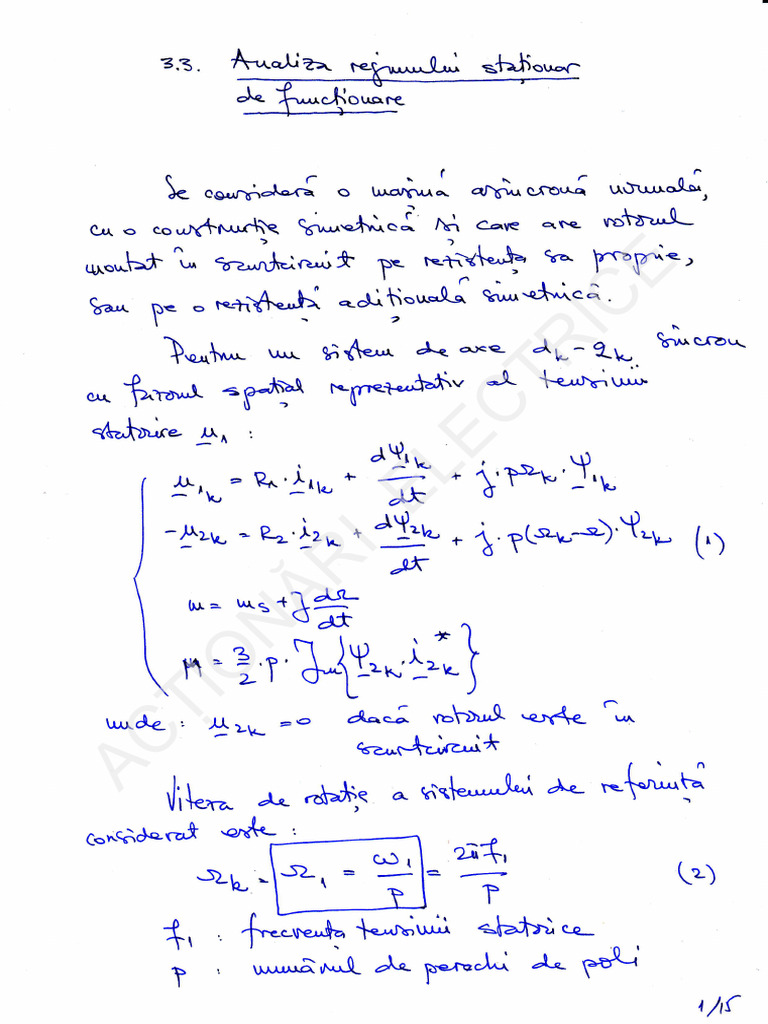 3.3. Analiza regimului staționar
de funcționare
Se consideră o mașină asincronă normală,
cu o construcție simetrică și care are rotorul
montat în scurtcircuit pe rezistența sa proprie,
sau pe o rezistență adițională simetrică.
Pentru un sistem de axe d_k - q_k sincron
cu fazorul spațial reprezentativ al tensiunii
statorice u_1 :
u_1k = R_1 · i_1k + dΨ_1k/dt + j · pΩ_k · Ψ_1k
-u_2k = R_2 · i_2k + dΨ_2k/dt + j · p(Ω_k - Ω) · Ψ_2k (1)
m = m_s + J dΩ/dt
M = 3/2 · p · Im{Ψ_2k · i_2k^*}
unde : u_2k = 0 dacă rotorul este în
scurtcircuit
Viteza de rotație a sistemului de referință
considerat este :
Ω_k = Ω_1 = ω_1/p = 2πf_1/p (2)
f_1 : frecvența tensiunii statorice
p : numărul de perechi de poli
1/15
ACȚIONĂRI ELECTRICE